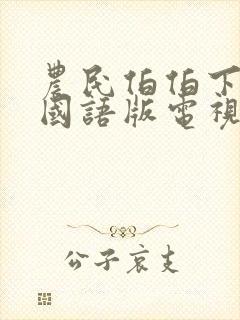 農民伯伯下
國語版電視
公子哀支